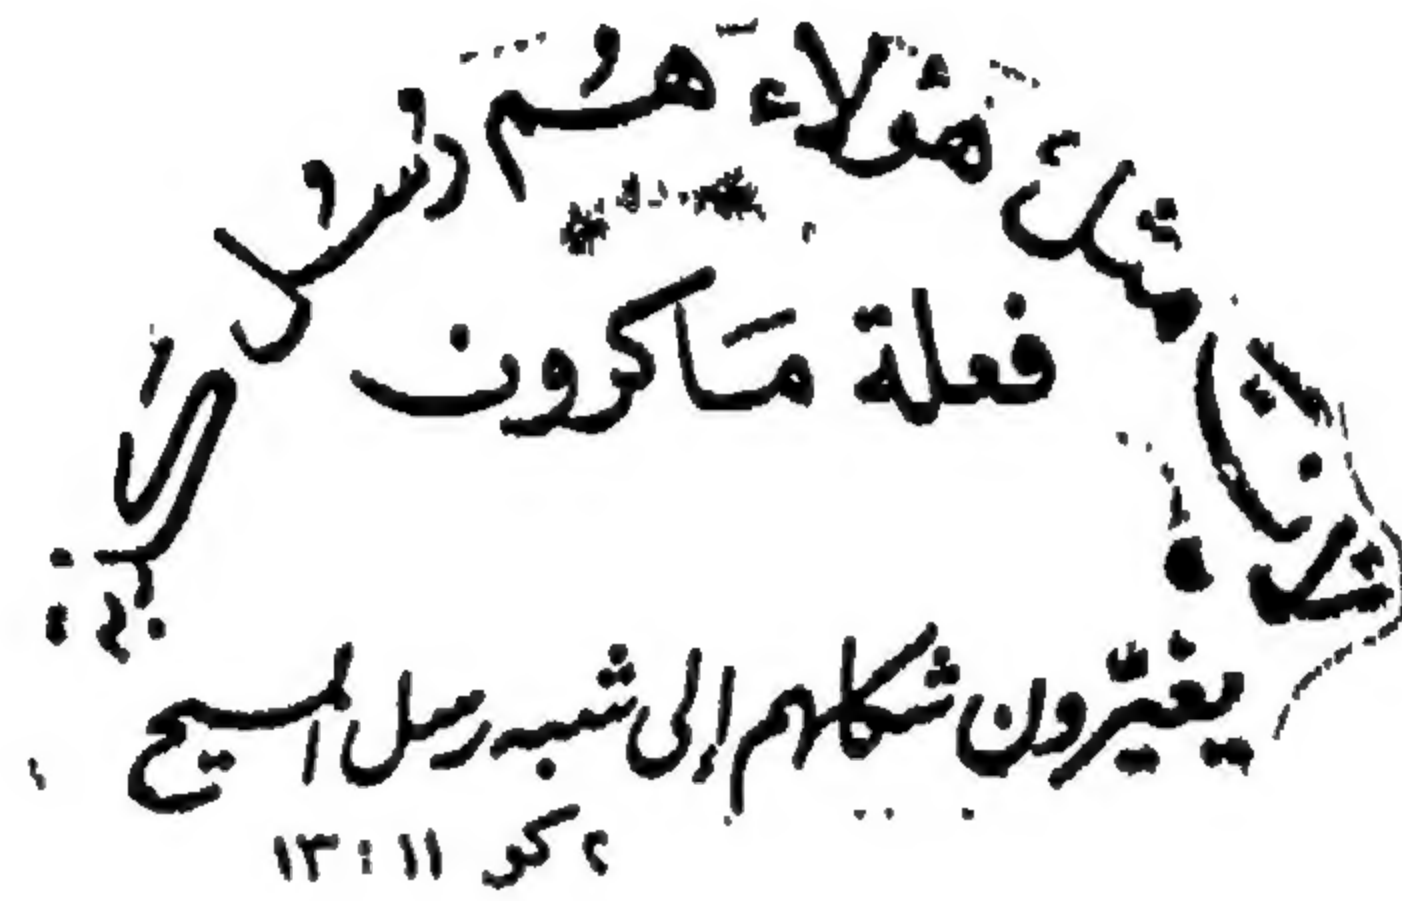 لأن مثل هؤلاء هُم رُسُل كَذَبة
فعلة مَاكرون
يغيّرون شكلهم إلى شبه رسل المسيح
٢ كو ١١ : ١٣